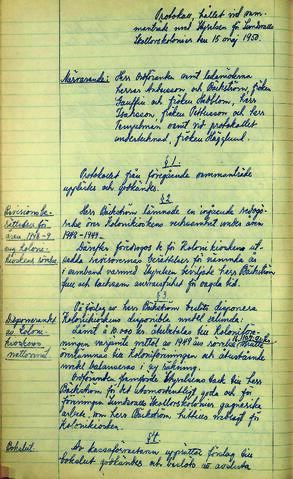 Protokoll, hållet vid sam-
manträde med styrelsen för Sundsvalls
Skollovskolonier den 15 maj 1950.
Närvarande: Herr Ordföranden samt ledamöterna
herrar Andersson och Bäckström, fröken
fröken Hedblom, herr
Isaksson, fröken Pettersson och herr
samt vid protokollet
undertecknad, fröken Hägglund.
§ 1.
Protokollet från föregående sammanträde
upplästes och godkändes.
§ 2.
Revisionsbe-
rättelsen för
åren 1948-9
ang. Koloni-
kioskens rörelse.
Herr Bäckström lämnade en ingående redogö-
relse över Kolonikioskens verksamhet under åren
1948-1949.
Därefter föredrogos de för Kolonikiosken
revisorernas berättelser för nämnda år
i samband varmed styrelsen beviljade herr Bäckström
full och tacksam ansvarsfrihet för angiva tid.
§ 3.
Disponerandet
av Koloni-
kioskens
nettomedel.
På förslag av herr Bäckström beslöts disponera
Kolonikioskens disponibla medel sålunda:
samt att 10.000 kr. utbetalas till Kolonifören-
ningen varjämte nettot av 1949 års rörelse
omlämnas till Koloniföreningen och återstående
medel balanseras i ny räkning.
Ordföranden framförde styrelsens tack till herr
Bäckström för det utomordentligt goda och för
föreningen Sundsvalls Skollovskolonier gagnerika
arbete, som herr Bäckström hittills nedlagt för
Kolonikiosken.
§ 4.
Bokslut.
Av kassaförvaltaren upprättat förslag till
bokslut godkändes och beslöts att avsluta